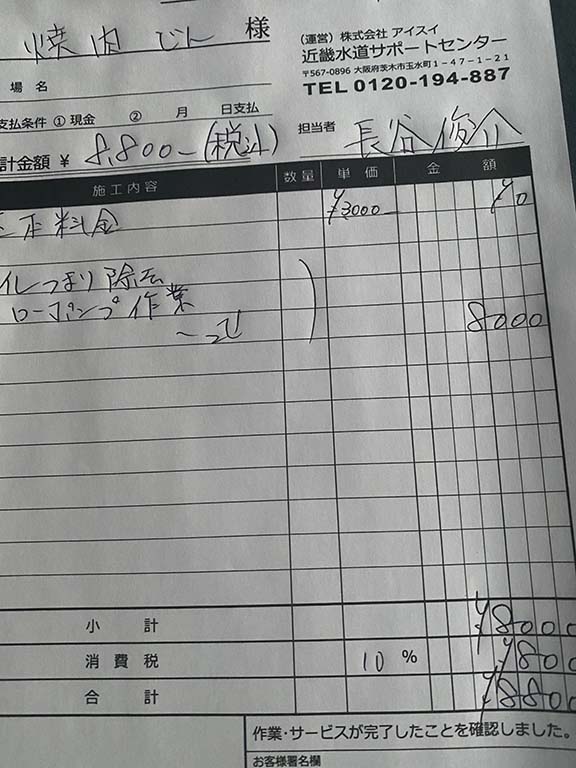 焼肉 じん 様
(運営) 株式会社 アイスイ
近畿水道サポートセンター
〒567-0896 大阪府茨木市玉水町1-47-1-21
TEL 0120-194-887
場名
支払条件 ① 現金 ② 月 日支払
担当者 長谷 俊介
計金額 ¥ 8,800-(税込)
施工内容 数量 単価 金額
料金 ¥3000- ¥0
イレつまり除去
ローポンプ作業
一式 8000
小計 ¥8000
消費税 10 % ¥800
合計 ¥8800
作業・サービスが完了したことを確認しました。
お客様署名欄